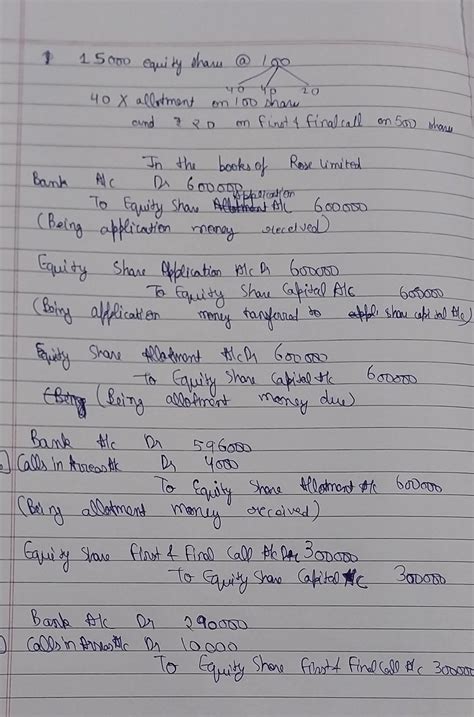 1 15000 equity share @ 100
40 40 20
40 X allotment on 100 share
and ₹ 20 on first & final call on 500 share
In the books of Rose Limited
Bank A/c Dr 600000
Application
To Equity Share Allotment A/c 600000
(Being application money received)
Equity Share Application A/c Dr 600000
To Equity Share Capital A/c 600000
(Being application money tanferred to appli share capital A/c)
Equity Share Allotment A/c Dr 600000
To Equity Share Capital A/c 600000
(Being (Being allotment money due)
Bank A/c Dr 596000
Calls in Arrears A/c Dr 4000
To Equity Share Allotment A/c 600000
(Being allotment money received)
Equity Share First & Final Call A/c Dr 300000
To Equity Share Capital A/c 300000
Bank A/c Dr 290000
Calls in Arrears A/c Dr 10000
To Equity Share First & Final Call A/c 300000